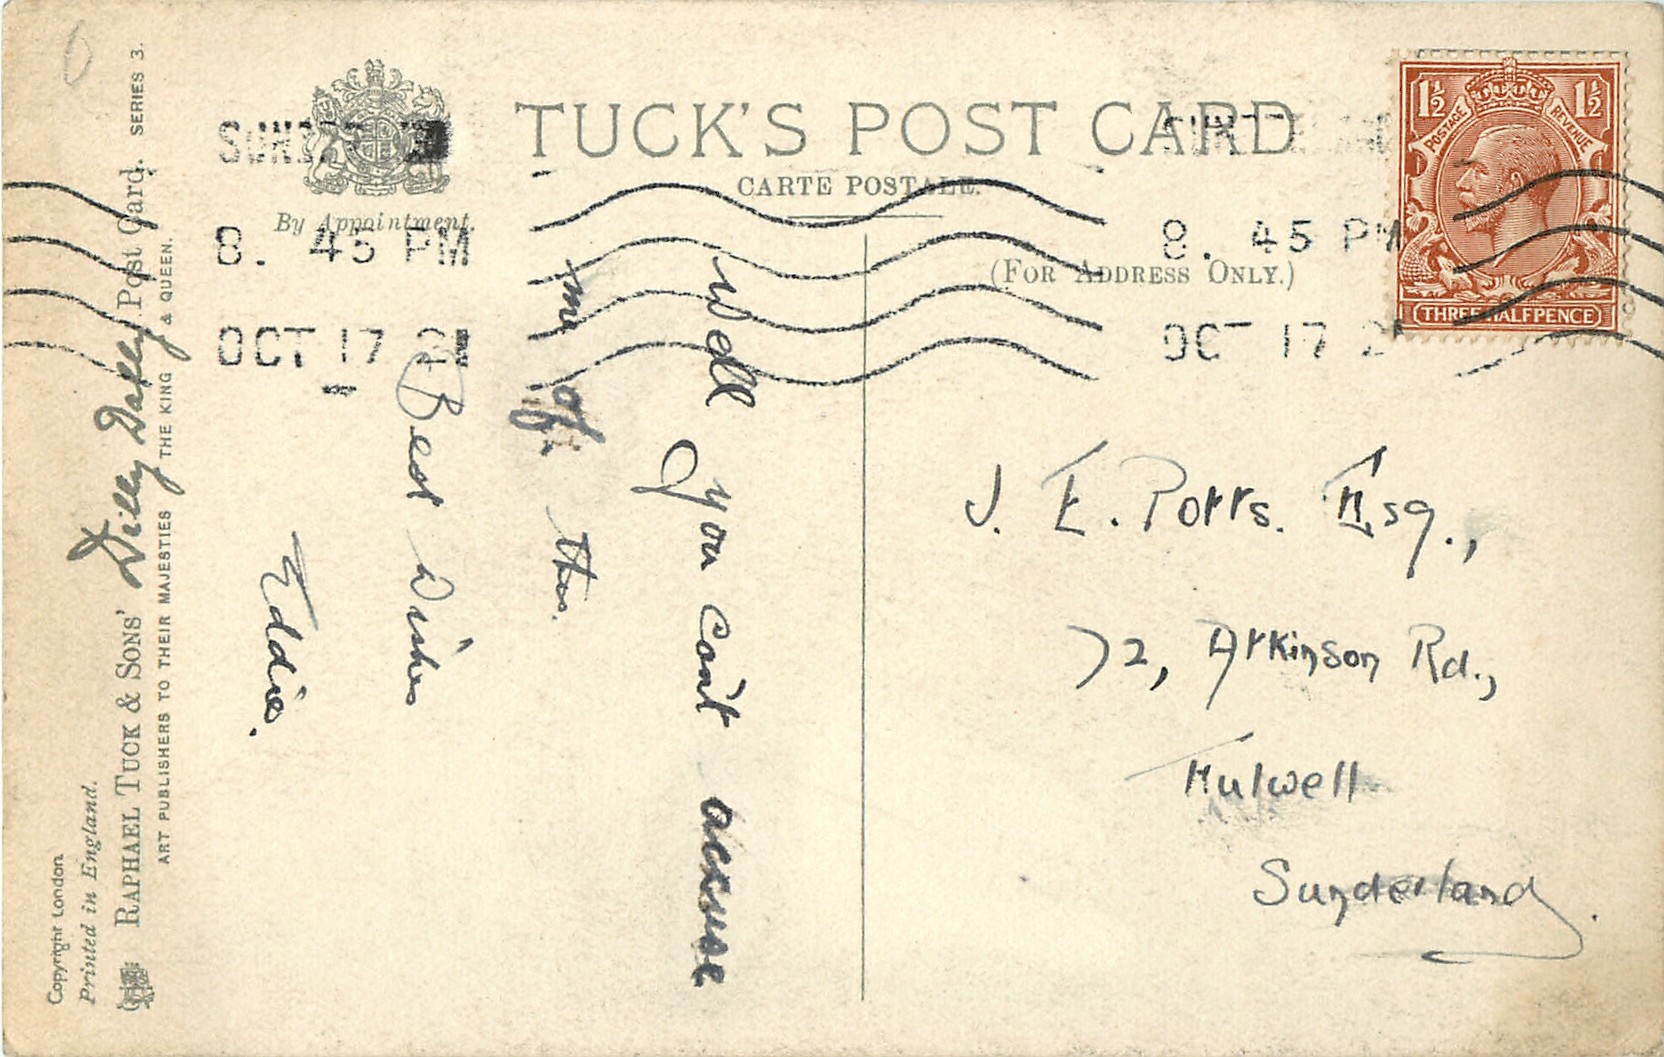 TUCK'S POST CARD
CARTE POSTALE.
By Appointment.
(FOR ADDRESS ONLY.)
1½ 1½
POSTAGE REVENUE
THREE HALFPENCE
8. 45 PM
OCT 17
8. 45 PM
OCT 17
Well you can't accuse
me of this.
Best Wishes
Eddie.
J. E. Potts. Esq.,
72, Atkinson Rd.,
Fulwell
Sunderland.
Copyright London.
Printed in England.
RAPHAEL TUCK & SONS' Dilly Dally Post Card. SERIES 3.
ART PUBLISHERS TO THEIR MAJESTIES THE KING & QUEEN.